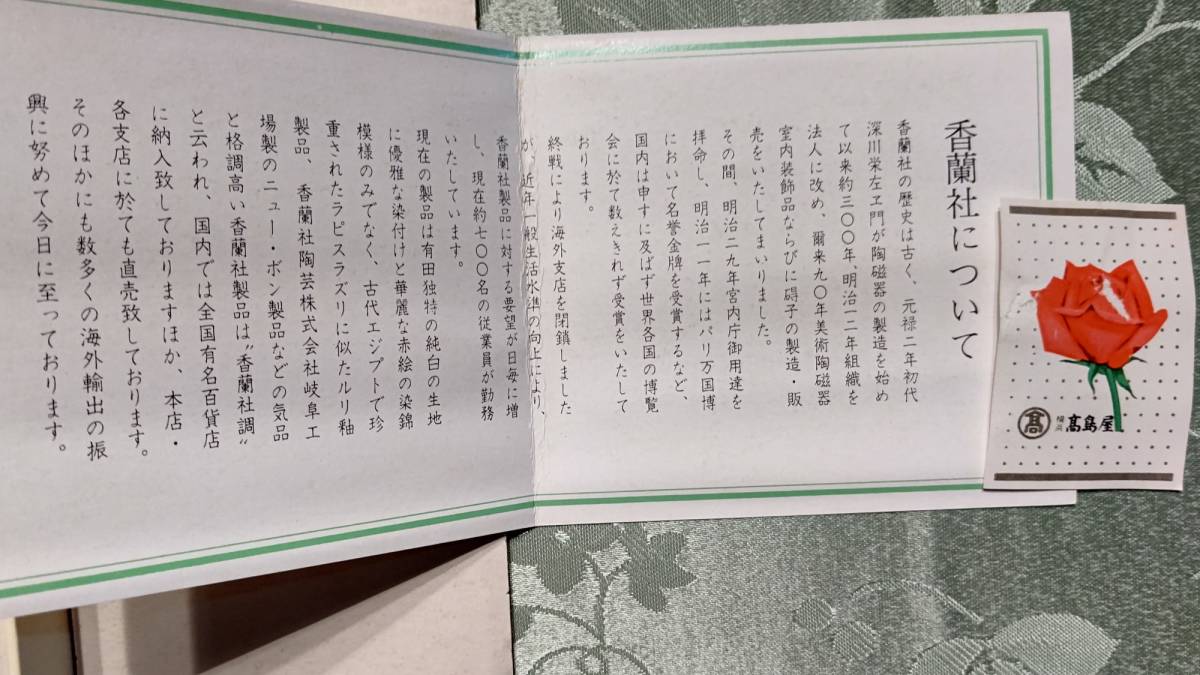 香蘭社について
香蘭社の歴史は古く、元禄二年初代
深川栄左ヱ門が陶磁器の製造を始め
て以来約三〇〇年、明治一二年組織を
法人に改め、爾来九〇年美術陶磁器
室内装飾品ならびに碍子の製造・販
売をいたしてまいりました。
その間、明治二九年宮内庁御用達を
拝命し、明治一一年にはパリ万国博
において名誉金牌を受賞するなど、
国内は申すに及ばず世界各国の博覧
会に於て数えきれず受賞をいたして
おります。
終戦により海外支店を閉鎖しました
が、近年一般生活水準の向上により、
香蘭社製品に対する要望が日毎に増
し、現在約七〇〇名の従業員が勤務
いたしています。
現在の製品は有田独特の純白の生地
に優雅な染付けと華麗な赤絵の染錦
模様のみでなく、古代エジプトで珍
重されたラピスラズリに似たルリ釉
製品、香蘭社陶芸株式会社岐阜工
場製のニュー・ボン製品などの気品
と格調高い香蘭社製品は〝香蘭社調〟
と云われ、国内では全国有名百貨店
に納入致しておりますほか、本店・
各支店に於ても直売致しております。
そのほかにも数多くの海外輸出の振
興に努めて今日に至っております。
髙 横浜 髙島屋